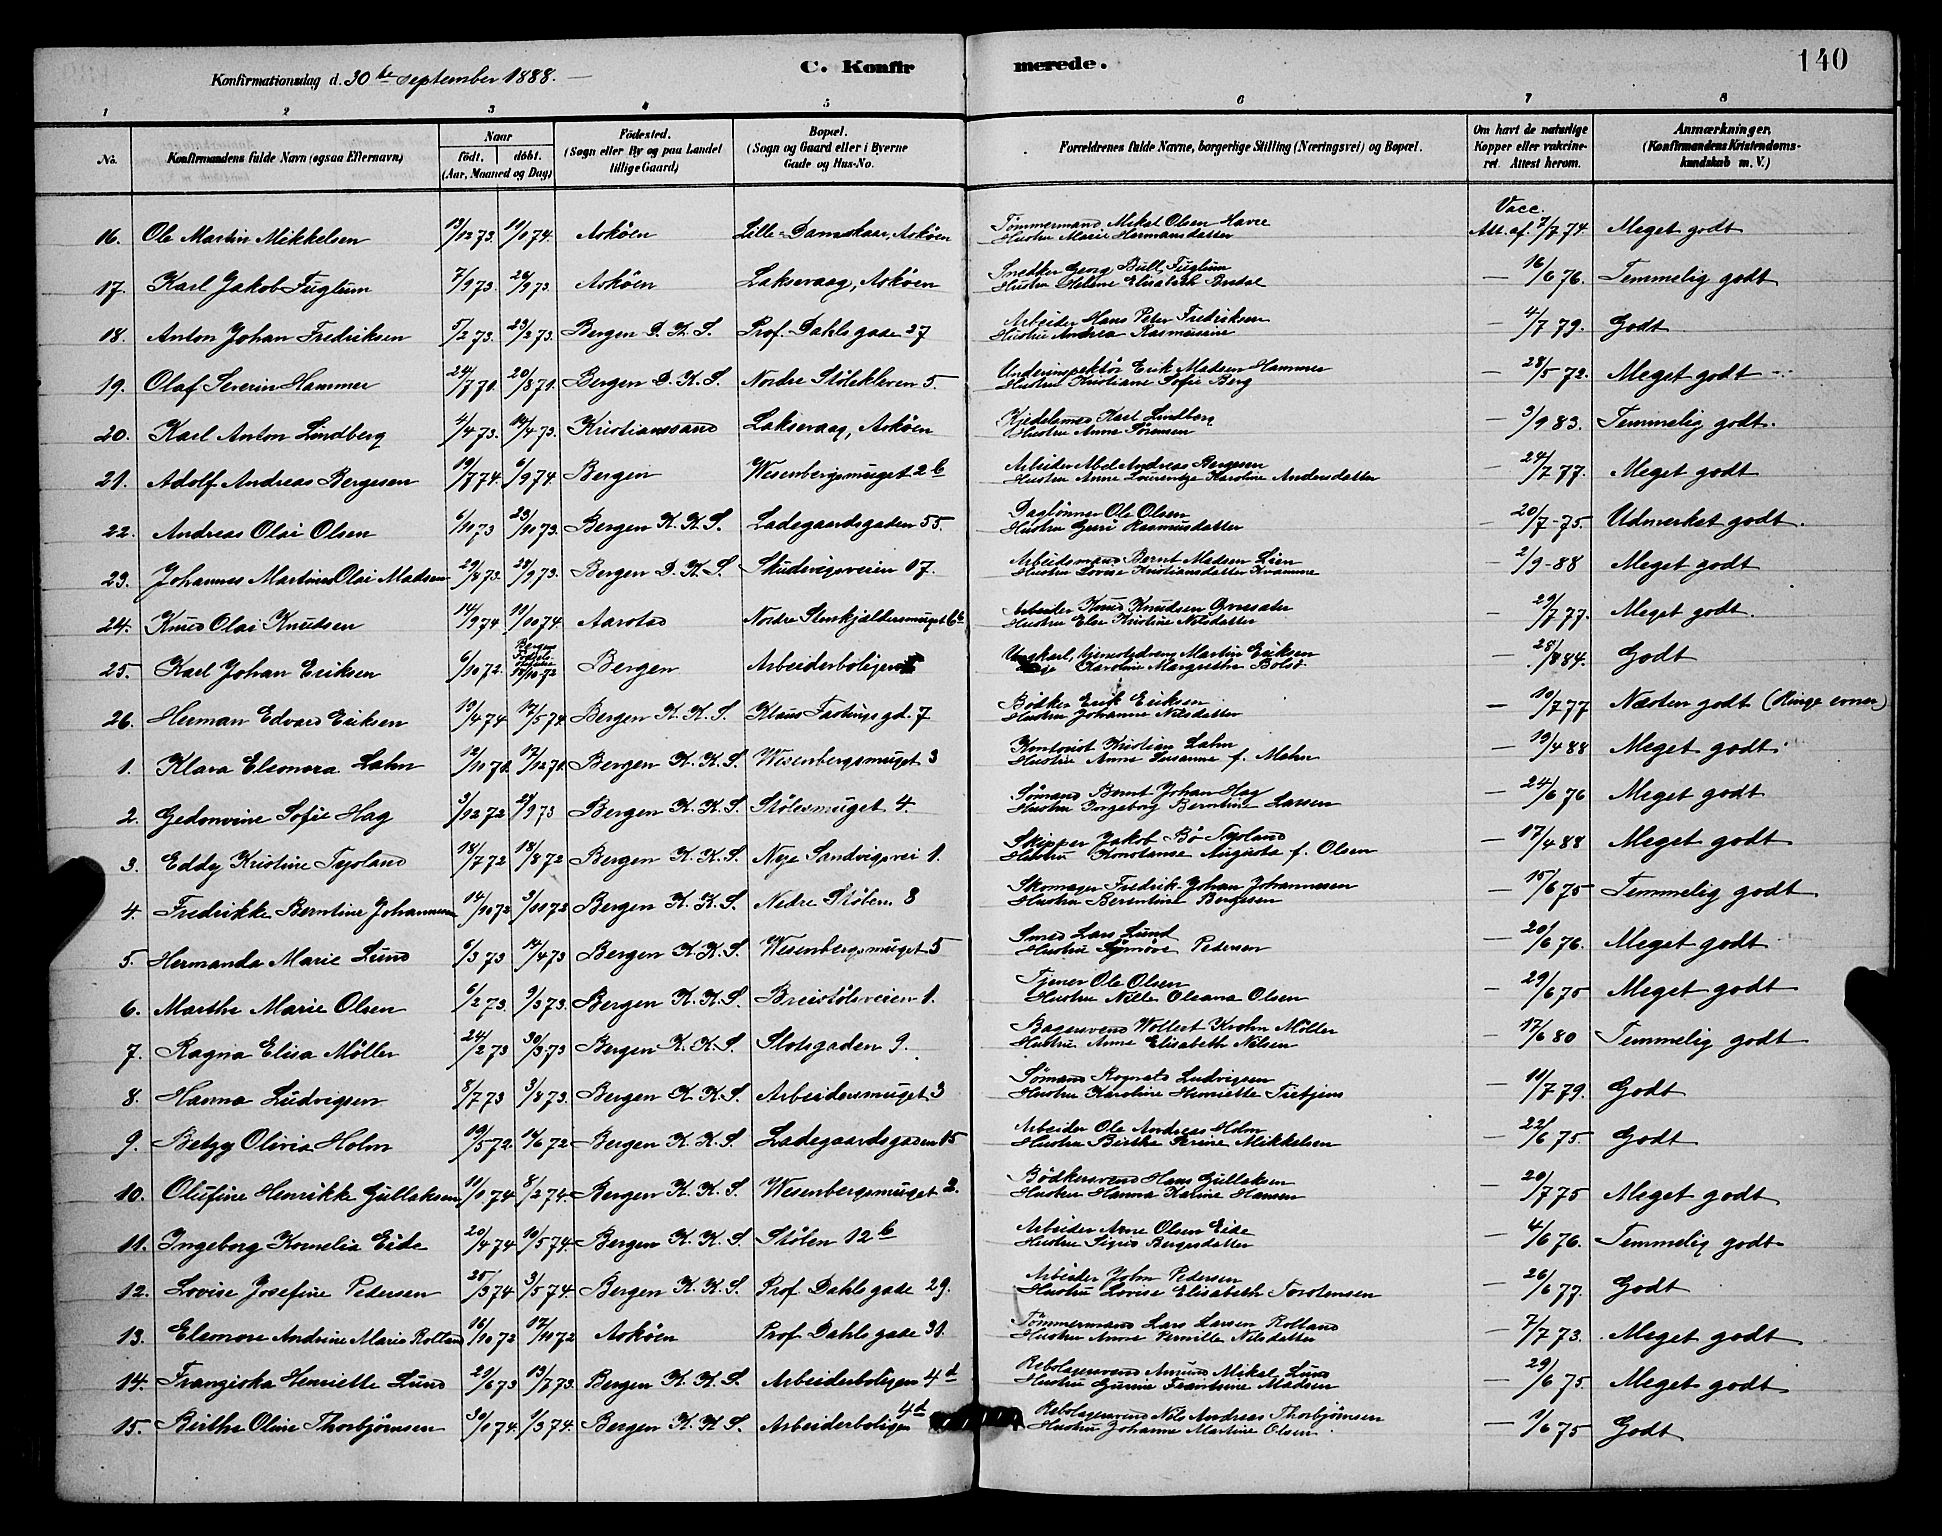 140
Konfirmationsdag d. 30te september 1888.
C. Konfirmerede.
1 2 3 4 5 6 7 8
No. Konfirmandens fulde Navn (ogsaa Efternavn) Naar födt. döbt. (Aar, Maaned og Dag) Födested. (Sogn eller By og paa Landet tillige Gaard) Bopæl. (Sogn og Gaard eller i Byerne Gade og Hus-No. Forældrenes fulde Navne, borgerlige Stilling (Næringsvei) og Bopæl. Om havt de naturlige Kopper eller vakcineret. Attest herom. Anmærkninger, (Konfirmandens Kristendomskundskab m. V.)
16. Ole Martin Mikkelsen 13/12 73. 11/1 74. Askøen Lille-Damskaar, Askøen Tømmermand Mikal Olsen Havre Hustru Marie Hermansdatter Vacc. Att. af. 7/7 74. Meget godt
17. Karl Jakob Fuglum 7/9 73. 26/9 73. Askøen Laksevaag, Askøen Snedker Georg Bull Fuglum Hustru Helene Elisabeth Bredal — 16/6 76. Temmelig godt
18. Anton Johan Fredriksen 5/2 73. 23/2 73. Bergen D. K. S. Prof. Dahls gade 27 Arbeider Hans Peter Fredriksen Hustru Andrea Rasmusine — 4/7 79. Godt
19. Olaf Severin Hammer 24/7 71. 20/8 71. Bergen D. K. S. Nordre Stølekleven 5. Underinspektör Erik Madsen Hammer Hustru Kristiane Sofie Berg — 28/5 72. Meget godt
20. Karl Anton Lindberg 4/4 73. 14/4 73. Kristianssand Laksevaag, Askøen Kjedelsmed Karl Lindberg Hustru Anne Sørensen — 3/9 83. Temmelig godt.
21. Adolf Andreas Bergesen 19/7 74. 6/9 74. Bergen Wesenbergsmuget 2b Arbeider Abel Andreas Bergesen Hustru Anne Lourentze Karoline Andersdatter — 24/7 77. Meget godt
22. Andreas Olai Olsen 6/10 73 23/10 73. Bergen K. K. S. Ladegaardsgaden 55. Daglønner Ole Olsen Hustru Guri Rasmusdatter — 20/7-75. Udmerket godt.
23. Johannes Martinus Olai Madsen 29/8 73. 28/9 73. Bergen D. K. S. Skudevigsveien 17. Arbeidsmand Bernt Madsen Lien Hustru Lovise Kristiansdatter Kvamme — 2/9-88 Meget godt
24. Knud Olai Knudsen 14/9 74 11/10 74. Aarstad Nordre Stenkjeldersmuget 6b Arbeider Knud Knudsen Hustru Else Kristine Nilsdatter — 29/7 77. Meget godt.
25. Karl Johan Eriksen 6/10 72. Bergen Arbeiderboligen Ungkarl, tjenestedreng Martin Eriksen Karoline Margrethe — 28/8 84. Godt
26. Herman Edvard Eriksen 13/4 74 17/5 74. Bergen K. K. S. Klaus Fastings gd. 7 Bødker Erik Eriksen Hustru Johanne Nilsdatter — 10/7 77 Næsten godt (Ringe evner)
1. Klara Eleonora Lahn 12/11 71. 17/12 71. Bergen K. K. S. Wesenbergsmuget 3 Kontorist Kristian Lahn Hustru Anne Susanne f. Mohn — 19/4 88 Meget godt.
2. Gedonvine Sofie Hag 3/12 72 28/9 73 Bergen K. K. S. Stølesmuget 4. Sømand Bernt Johan Hag Hustru Ingeborg Berntine Larsen — 24/6 76 Meget godt
3. Eddy Kristine Tysland 18/7 72 18/8 72 Bergen K. K. S. Nye Sandvigsvei 1. Skipper Jakob Bø Tysland Hustru Konstanse Augusta f. Olsen — 17/4 88 Meget godt
4. Fredrikke Berntine Johannesen 14/10 72 3/11 72 Bergen K. K. S. Nedre Stølen. 8 Skomager Fredrik Johan Johannesen Hustru Berentine Bergesen — 15/6 75 Temmelig godt
5. Hermanda Marie Lund 6/3 73 14/4 73 Bergen K. K. S. Wesenbergsmuget 5 Smed Lars Lund Hustru Synnöve Pedersen — 20/6 76. Meget godt
6. Marthe Marie Olsen 6/2 73. 9/3 73. Bergen K. K. S. Breistölsveien 1. Tjener Ole Olsen Hustru Nille Oleana Olsen — 29/6 75 Meget godt
7. Ragna Elisa Möller 24/2 73 30/3 73 Bergen K. K. S. Slotsgaden 9. Bagersvend Wollert Krohn Möller Hustru Anne Elisabeth Nilsen — 17/6 80 Temmelig godt
8. Hanna Ludvigsen 8/7 73 3/8 73. Bergen K. K. S. Arbeidersmuget 3 Sømand Ludvigsen Hustru Karoline Henriette Tietjens — 11/7 79. Godt
9. Betzy Olivia Holm 19/5 72. 16/6 72 Bergen K. K. S. Ladegaardsgaden 15 Arbeider Ole Andreas Holm Hustru Birthe Mikkelsen — 22/6 75 Godt
10. Olufine Henrikke Gullaksen 11/1 74 8/2 74. Bergen K. K. S. Wesenbergsmuget 2. Bödkersvend Hans Gullaksen Hustru Hanna Karine Hansen — 20/7 75 Meget godt
11. Ingeborg Kornelia Eide 20/4 74 10/5 74. Bergen K. K. S. Stølen 12b Arbeider Arne Olsen Eide Hustru Sigrid Bergesdatter — 4/6 76. Temmelig godt
12. Lovise Josefine Pedersen 25/3 74 3/5 74. Bergen K. K. S. Prof Dahls gade 29. Arbeider John Pedersen Hustru Lovise Elisabeth Torstensen — 26/6 77. Godt
13. Elenore Andrine Marie Rolland 16/10 72 17/11 72 Askøen Prof. Dahls gade 31. Tømmermand Lars Larsen Rolland Hustru Anne Pernille Nilsdatter — 7/7 73. Meget godt
14. Franziska Henriette Lund 21/6 73 13/7 73. Bergen K. K. S. Arbeiderboligen 4d Rebslagersvend Amund Mikal Lund Hustru Gurine Frantsine Madsen — 29/6 75. Meget godt
15. Birthe Oline Thorbjørnsen 30/1 74. 1/3 74. Bergen K. K. S. Arbeiderboligen 4d Rebslagersvend Nils Andreas Thorbjørnsen Hustru Johanne Martine Olsen. — 1/6 75 Godt